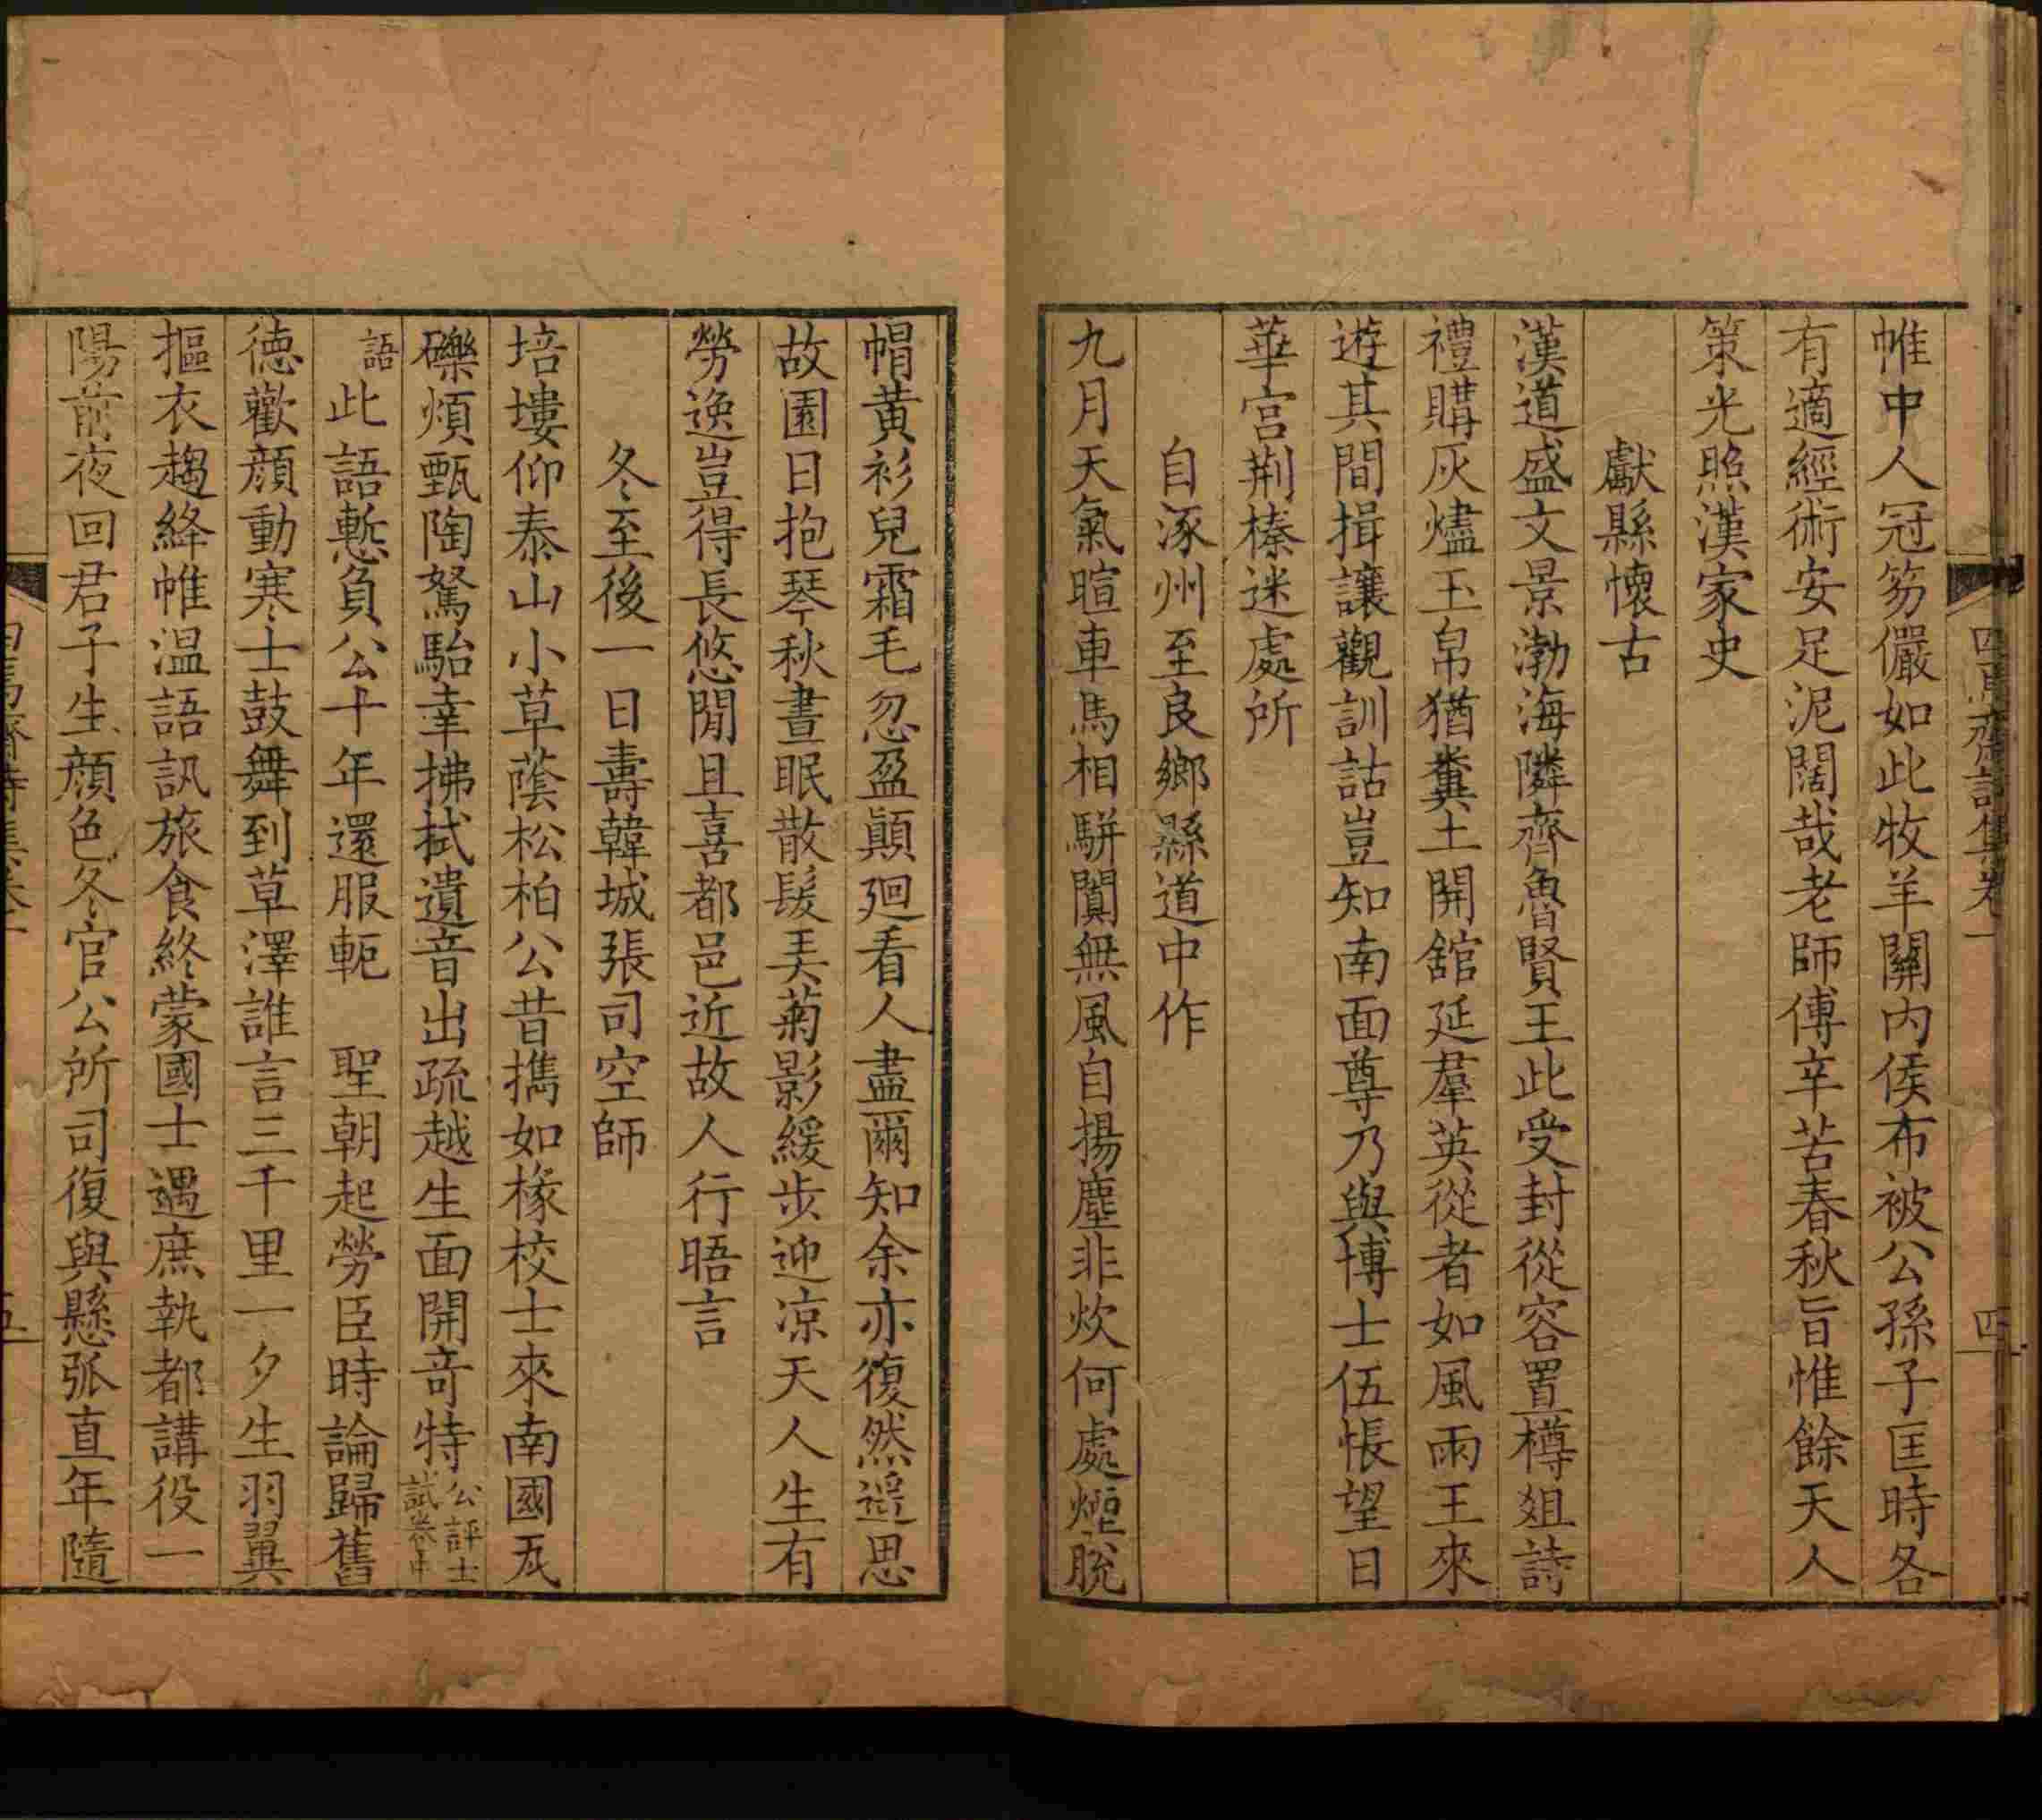 四焉齋詩集卷一
四
帷中人冠笏儼如此牧羊關內侯布被公孫子匡時各
有適經術安足泥闊哉老師傅辛苦春秋旨惟餘天人
策光照漢家史
獻縣懷古
漢道盛文景渤海隣齊魯賢王此受封從容置樽俎詩
禮購灰燼玉帛猶糞土開舘延羣英從者如風雨王來
遊其間揖讓觀訓詁豈知南面尊乃與博士伍悵望日
華宮荆榛迷處所
自涿州至良鄉縣道中作
九月天氣暄車馬相駢闐無風自揚塵非炊何處煙脫
帽黃衫兒霜毛忽盈顛廻看人盡爾知余亦復然遥思
故園日抱琴秋晝眠散髮弄菊影緩步迎凉天人生有
勞逸豈得長悠閒且喜都邑近故人行晤言
冬至後一日壽韓城張司空師
培塿仰泰山小草蔭松柏公昔擕如椽校士來南國瓦
礫煩甄陶駑駘幸拂拭遺音出疏越生面開奇特公評士
試卷中
語此語慙負公十年還服軛 聖朝起勞臣時論歸舊
德歡顔動寒士鼓舞到草澤誰言三千里一夕生羽翼
摳衣趨絳帷温語訊旅食終蒙國士遇庶執都講役一
陽前夜回君子生顔色冬官公所司復與懸弧直年隨
四焉齋詩集卷一
五